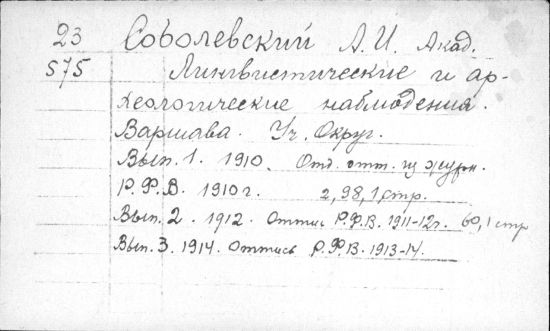 23 Соболевский А.И. Акад.
575 Лингвистические и ар-
хеологические наблюдения.
Варшава. Уч. Округ.
Вып. 1. 1910. Отд. отт. из журн.
Р.Ф.В. 1910 г. 2, 98, 1 стр.
Вып. 2. 1912. Оттис Р.Ф.В. 1911-12г. 60, 1 стр
Вып. 3. 1914. Оттись Р.Ф.В. 1913-14.